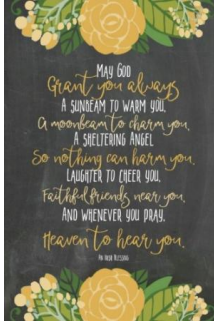 MAY GOD
Grant you always
A SUNBEAM TO WARM YOU,
A moonbeam to charm you,
A SHELTERING ANGEL
So nothing can harm you.
LAUGHTER TO CHEER YOU,
Faithful friends near you,
AND WHENEVER YOU PRAY,
Heaven to hear you.
AN IRISH BLESSING